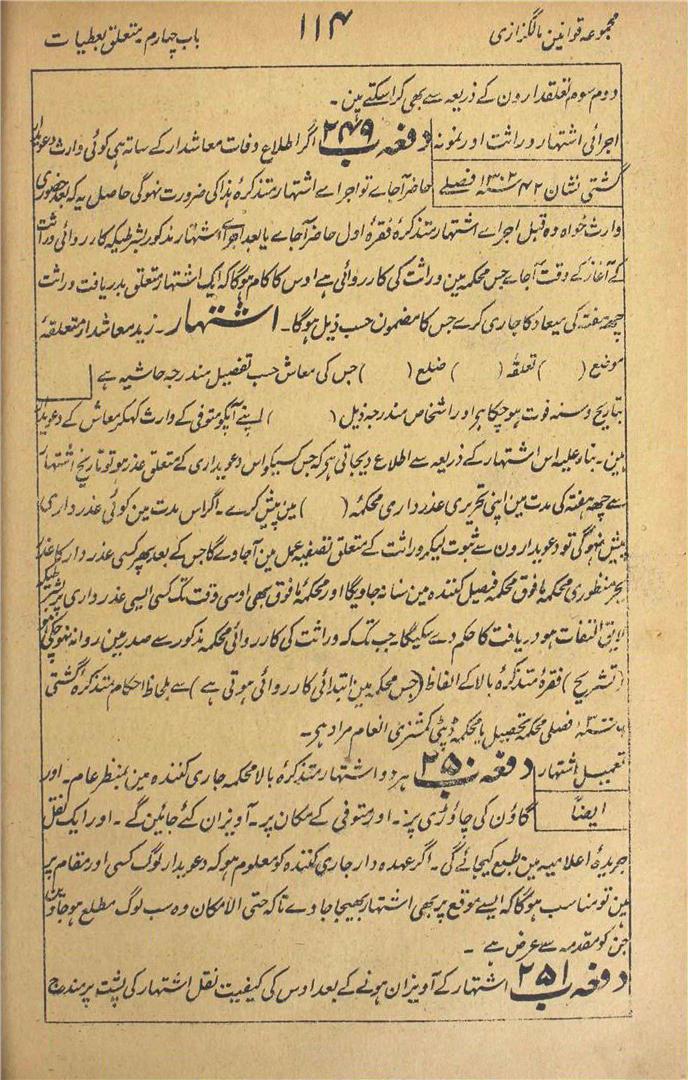 مجموعہ قوانین مالگزاری ۱۱۴ باب چہارم متعلق بعطیات
دوم سوم تعلقدارون کے ذریعہ سے بھی کراسکتے ہین ۔
اجرائی اشتہار وراثت اور نمونہ دفعہ ۲۴۹ اگر اطلاع وفات معاشدار کے ساتہ ہی کوئی وارث دعویدار
گشتی نشان ۴۲ ۱۳۰۲ فصلی حاضر آجاے تو اجراے اشتہار متذکرہ ہذا کی ضرورت نہوگی حاصل یہ کہ بعد حضوری
وارث خواہ وہ قبل اجراے اشتہار متذکرہ فقرہ اول حاضر آجاے یا بعد اجراے اشتہار مذکور بشرطیکہ کارروائی وراثت
کے آغاز کے وقت آجاے جس محکمہ مین وراثت کی کارروائی ہے اوس کا کام ہوگا کہ ایک اشتہار متعلق بدریافت وراثت
چھہ ہفتہ کی میعاد کا جاری کرے جس کا مضمون حسب ذیل ہوگا ۔ اشتہار ۔ زید معاشدار متعلقہ
موضع ( ) تعلقہ ( ) ضلع ( ) جس کی معاش حسب تفصیل مندرجہ حاشیہ ہے
بتاریخ و سنہ فوت ہوچکا ہے اور اشخاص مندرجہ ذیل ( ) اپنے آپکو متوفی کے وارث کہکر معاش کے دعویدار
ہین ۔ بناءعلیہ اس اشتہار کے ذریعہ سے اطلاع دیجاتی ہے کہ جس کسیکو اس دعویداری کے متعلق عذر ہو تو تاریخ اشتہار
سے چھہ ہفتہ کی مدت مین اپنی تحریری عذرداری محکمہ ( ) مین پیش کرے ۔ اگر اس مدت مین کوئی عذرداری
پیش نہوگی تو دعویدارون سے ثبوت لیکر وراثت کے متعلق تصفیہ عمل مین آجاوے گا جس کے بعد پھر کسی عذردار کا عذر
بجز منظوری محکمہ مافوق محکمہ فیصل کنندہ مین سنا نہ جاویگا اور محکمہ مافوق بھی اوسی وقت تک کسی ایسی عذرداری پر بشرطیکہ
لایق التفات ہو دریافت کا حکم دے سکیگا جب تک کہ وراثت کی کارروائی محکمہ مذکور سے صدر مین روانہ نہوچکی ہو
(تشریح) فقرہ متذکرہ بالا کے الفاظ (جس محکمہ مین ابتدائی کارروائی ہوتی ہے) سے بلحاظ احکام متذکرہ گشتی
فصلی محکمہ تحصیل یا محکمہ ڈپٹی کمشنری انعام مراد ہے ۔
تعمیل اشتہار دفعہ ۲۵۰ ہر دو اشتہار متذکرہ بالا محکمہ جاری کنندہ مین بمنظر عام ۔ اور
ایضاً گاؤن کی چاوڑی پر ۔ اور متوفی کے مکان پر ۔ آویزان کئے جائین گے ۔ اور ایک نقل
جریدہ اعلامیہ مین طبع کیجائے گی ۔ اگر عہدہ دار جاری کنندہ کو معلوم ہو کہ دعویدار لوگ کسی اور مقام پر
ہین تو مناسب ہوگا کہ ایسے موقع پر بھی اشتہار بھیجا جاوے تاکہ حتی الامکان وہ سب لوگ مطلع ہوجاوین
جن کو مقدمہ سے غرض ہے ۔
دفعہ ۲۵۱ اشتہار کے آویزان ہونے کے بعد اوس کی کیفیت نقل اشتہار کی پشت پر مندرج